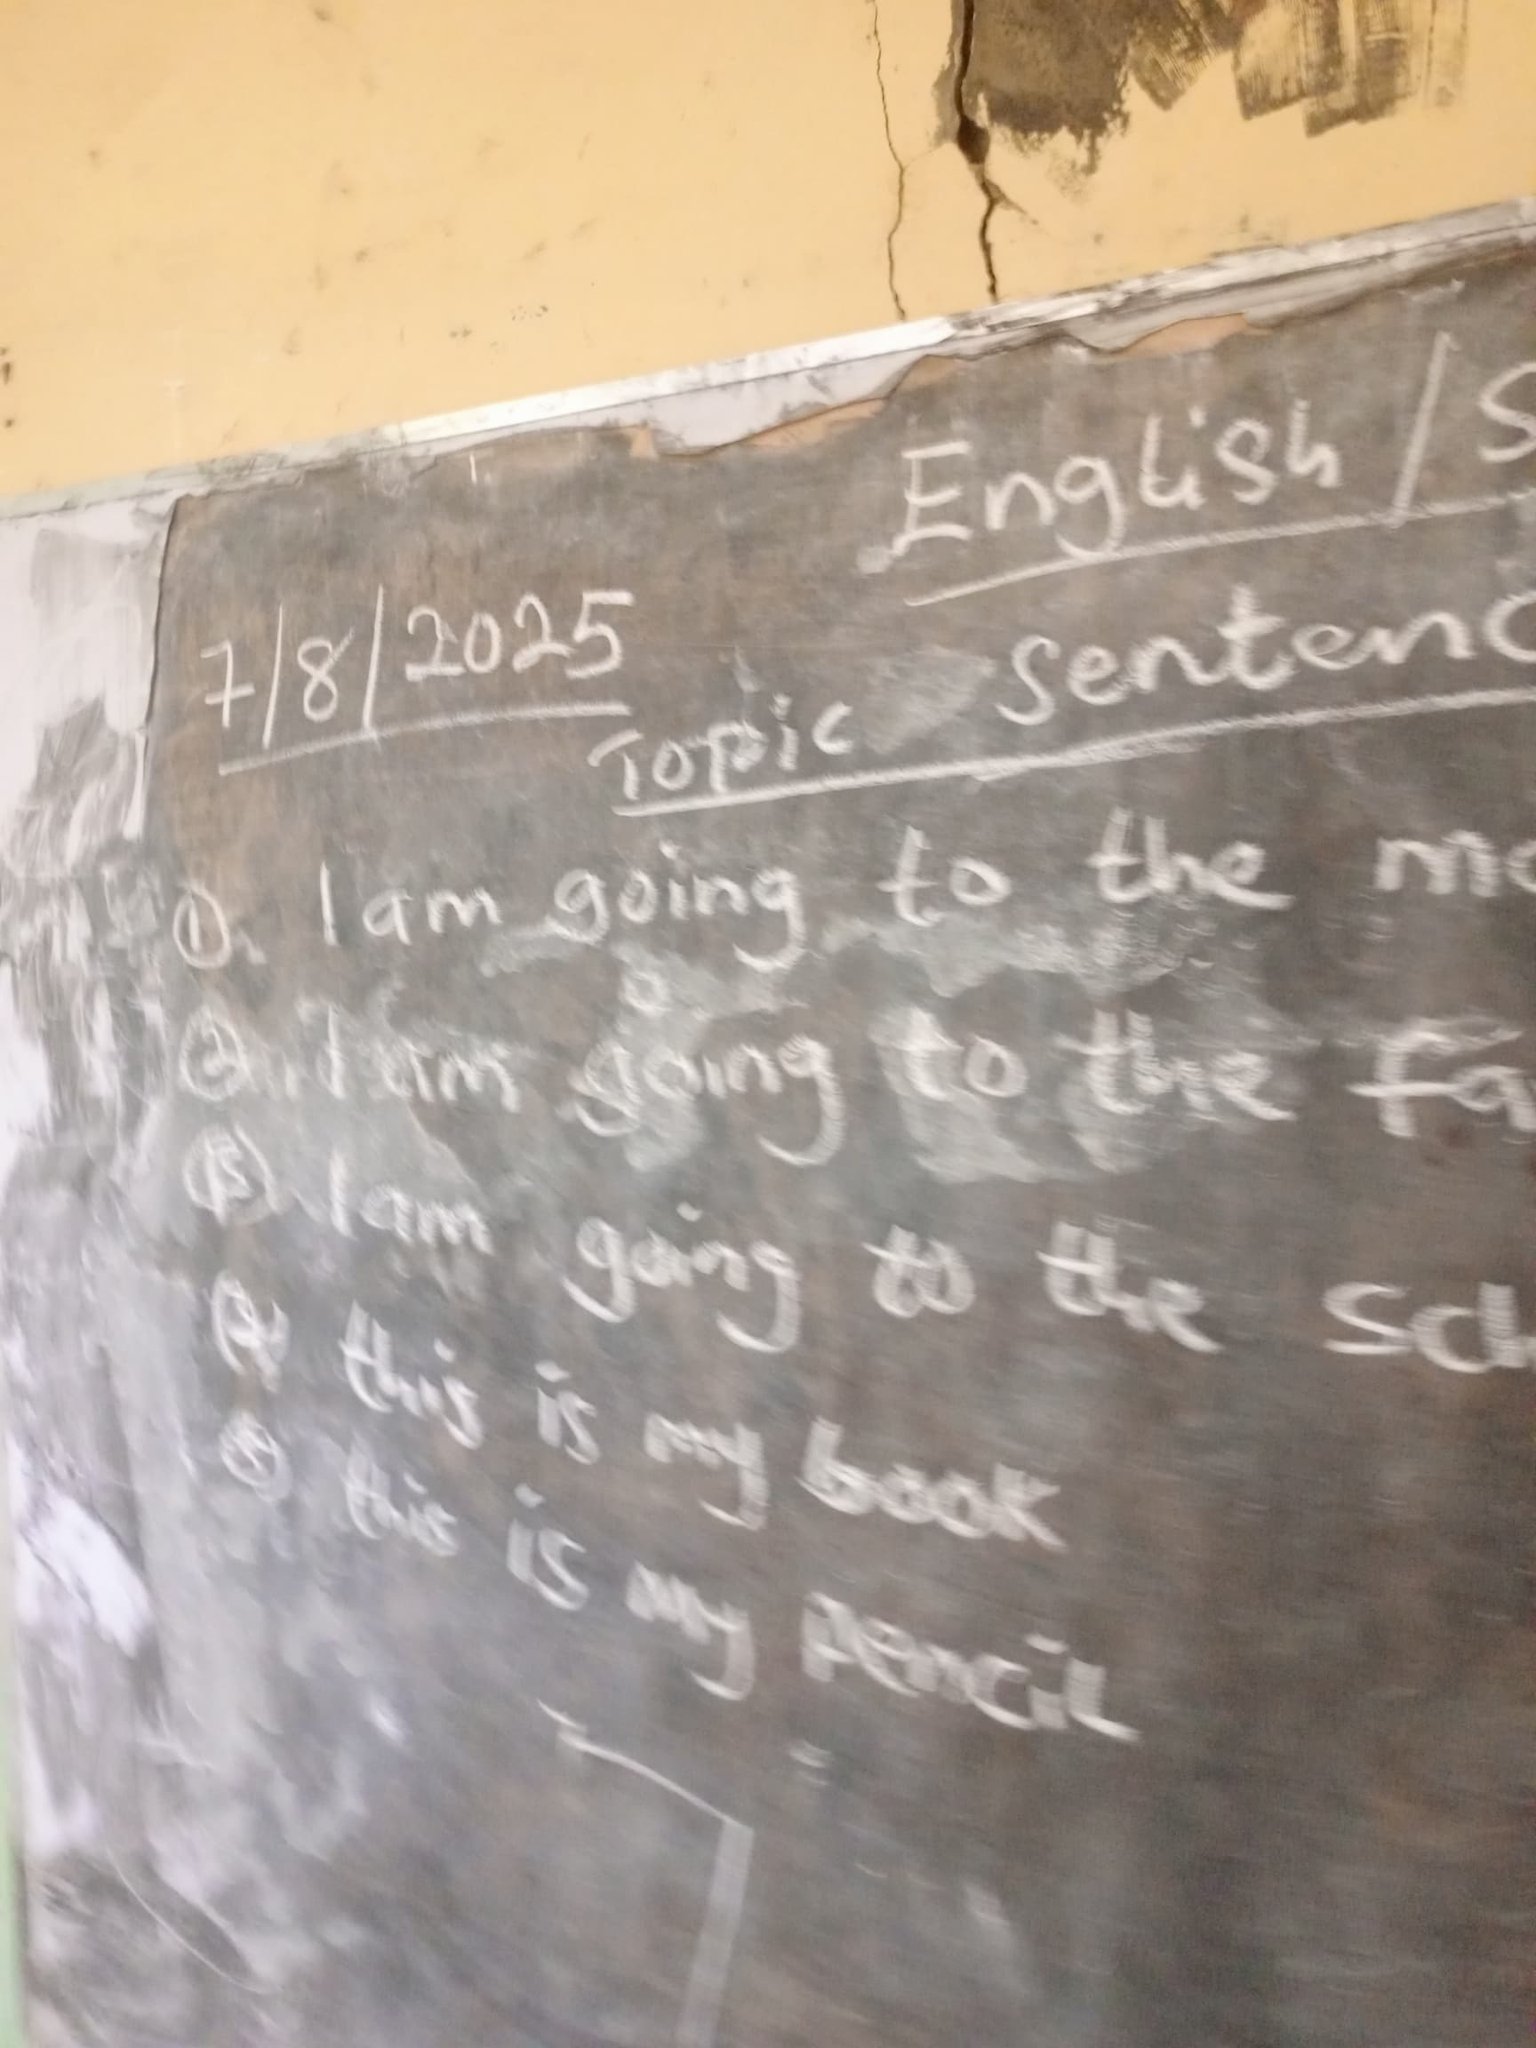 English / S
7/8/2025
Topic sentenc
①. I am going to the
②. I am going to the
③. I am going to the
④ this is my book
⑤ this is my pencil